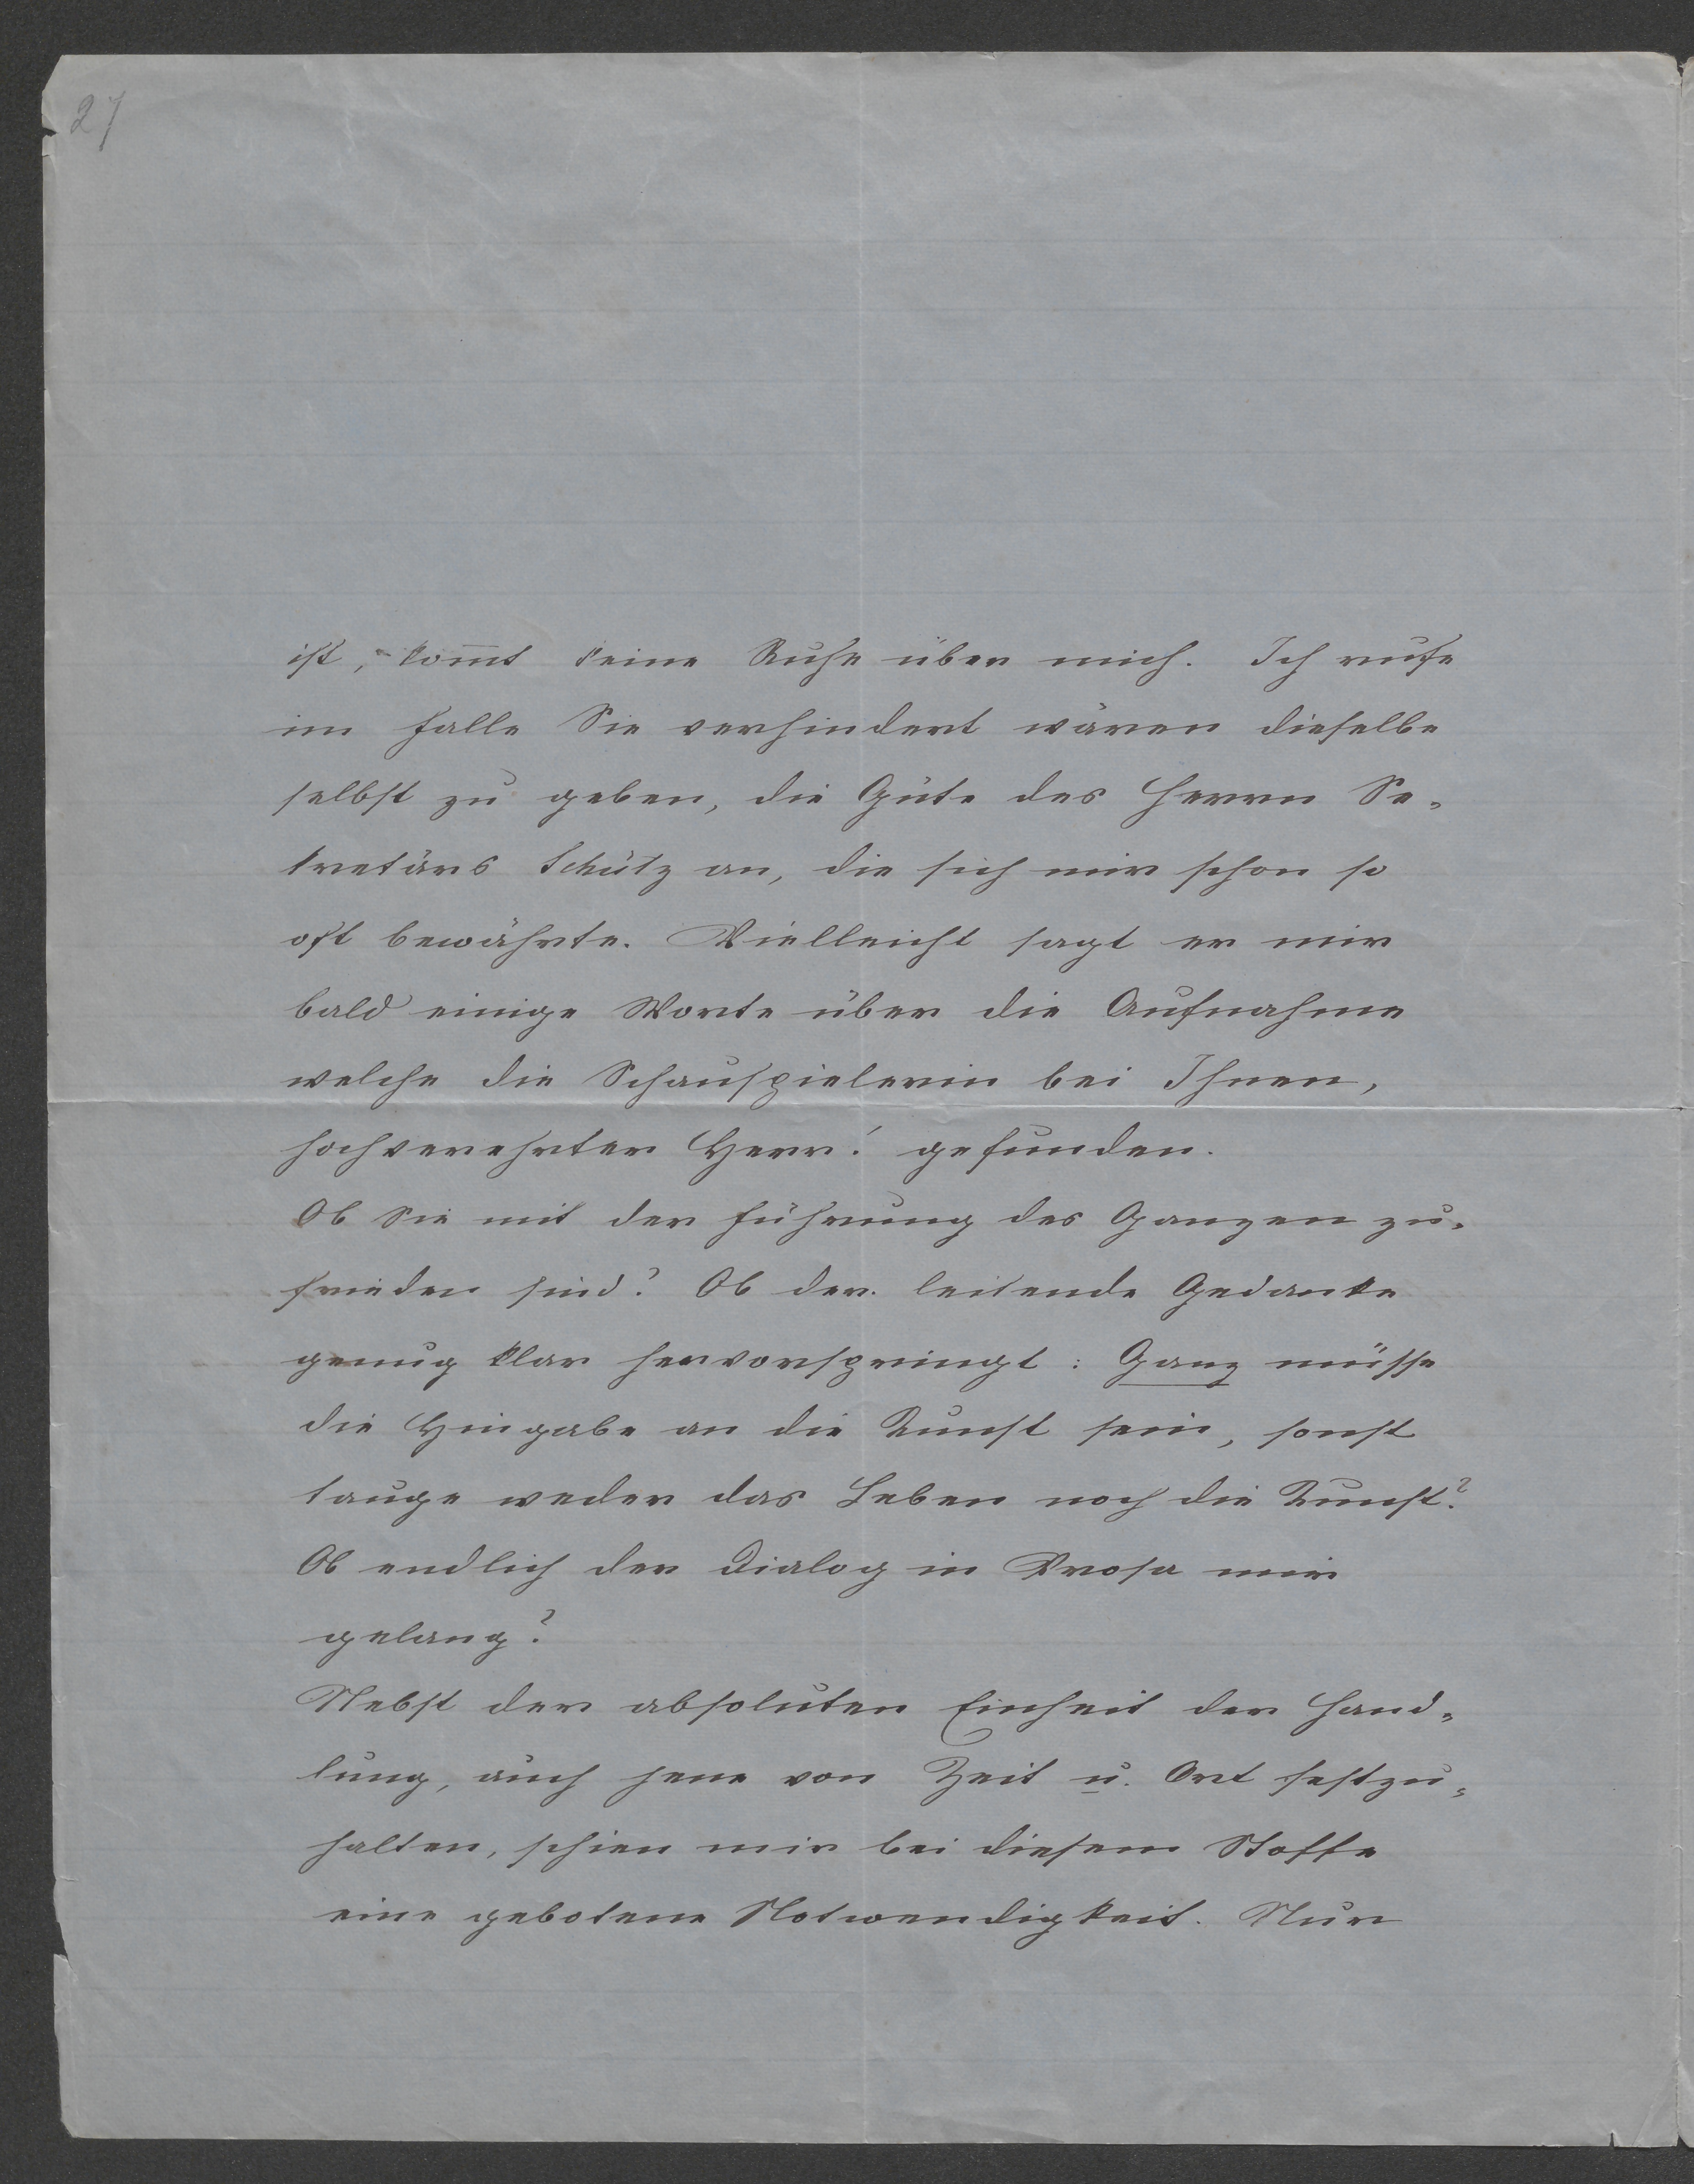 27
ist, kom̅t keine Ruhe über mich. Ich rufe
im Falle Sie verhindert wären dieselbe
selbst zu geben, die Güte des Herrn Se-
kretärs Schütz an, die sich mir schon so
oft bewährte. Vielleicht sagt er mir
bald einige Worte über die Aufnahme
welche die Schauspielerin bei Ihnen,
hochverehrter Herr! gefunden.
Ob Sie mit der Führung des Ganzen zu-
frieden sind? Ob der leitende Gedanke
genug klar hervorspringt: Ganz müsse
die Hingabe an die Kunst sein, sonst
tauge weder das Leben noch die Kunst?
Ob endlich der Dialog in Prosa mir
gelang?
Nebst der absoluten Einheit der Hand-
lung, auch jene von Zeit u. Ort festzu-
halten, schien mir bei diesem Stoffe
eine gebotene Notwendigkeit. Nur